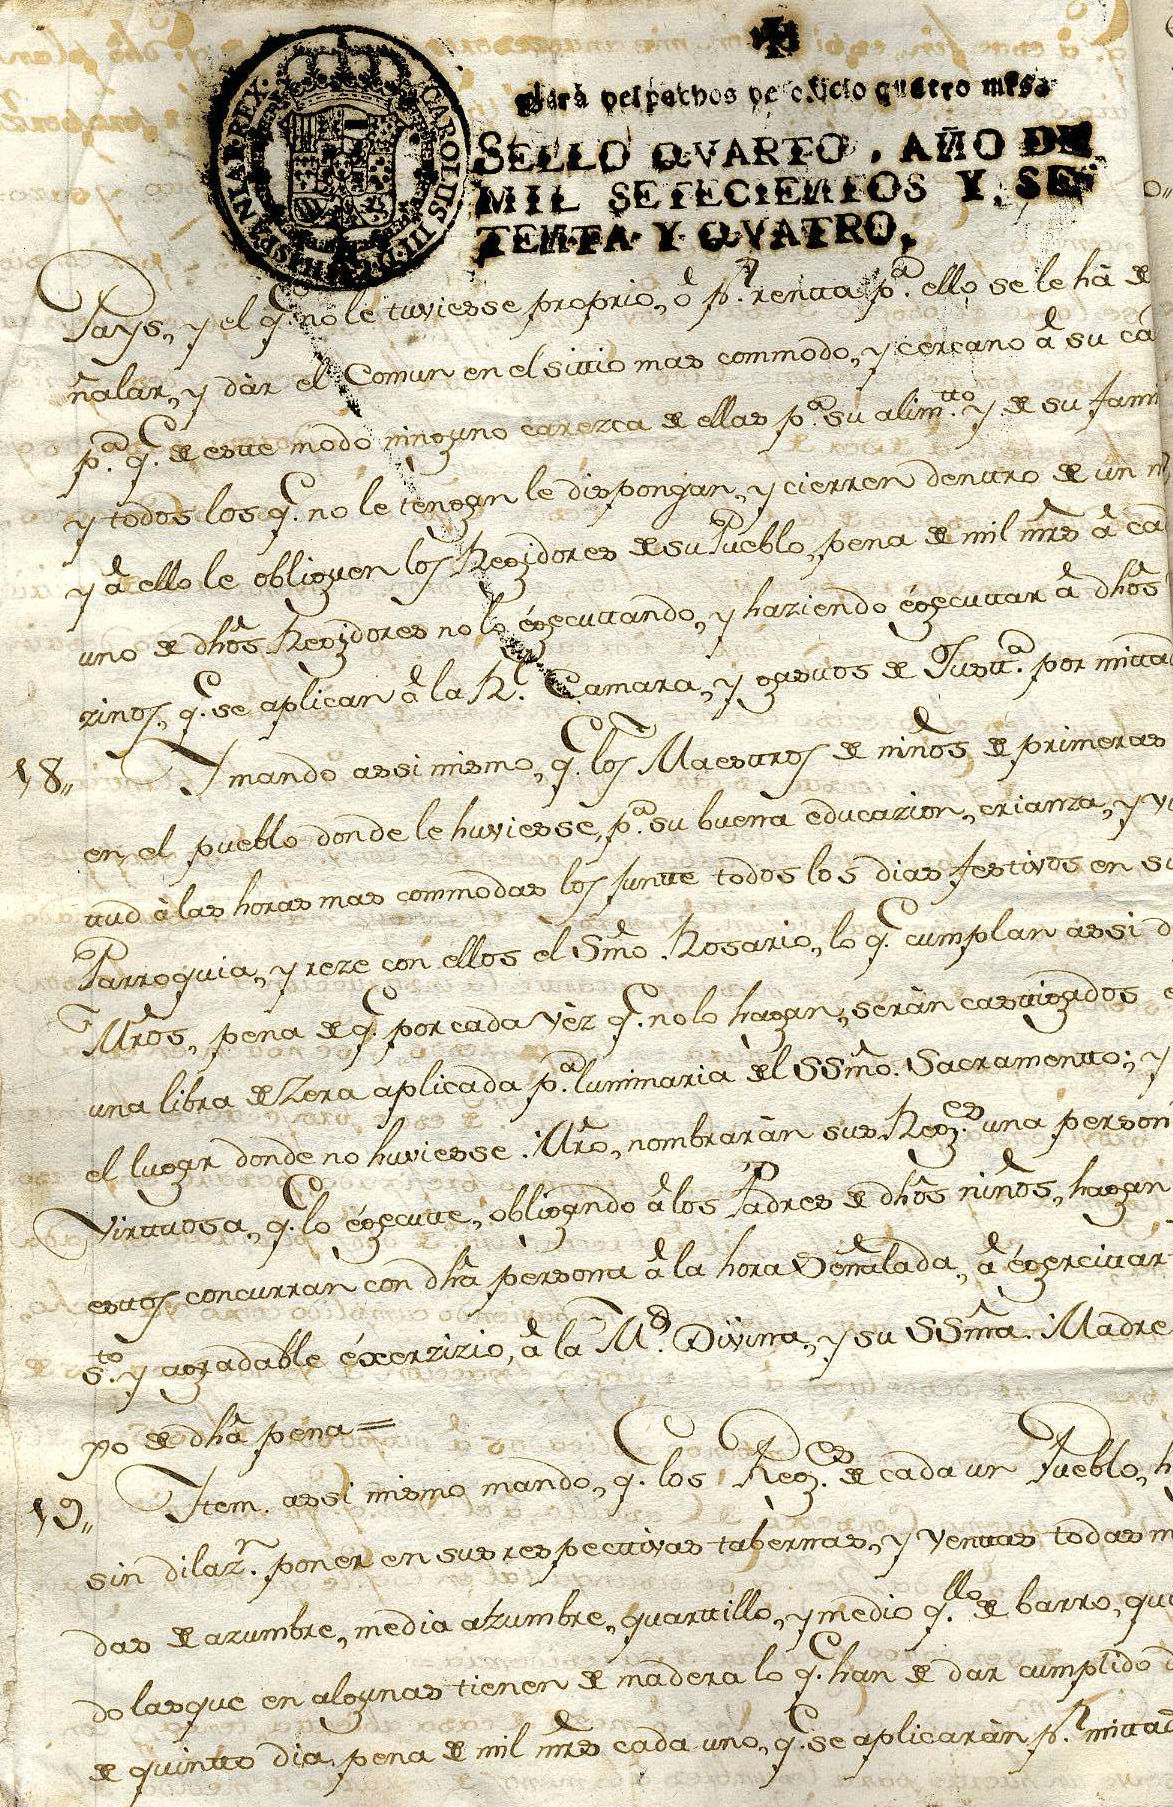 CAROLUS III D G HISPANIAR REX
Para despachos de oficio quatro mrs.
SELLO QVARTO, AÑO DE
MIL SETECIENTOS Y SE
TENTA Y QVATRO.
Pays, y el q.e no le tuviesse proprio, ó p.r renta p.a ello se le há de
ñalar, y dàr el Comun en el sitio mas commodo, y cercano á su ca
p.a q.e de este modo ninguno carezca de ellas p.a su alim.tto y de su fami
y todos los q.e no le tengan le dispongan, y cierren dentro de un
y á ello le obliguen los Regidores de su Pueblo, pena de mil mrs á ca
uno de dhos Regidores no lo éxecuttando, y haziendo éxecuttar á dhos
rinos, q.e se aplican á la R.l Camara, y gastos de Justt.a por mitta
18,, Y mando assi mismo, q.e los Maestros de niños de primeras
en el pueblo donde le huviesse, p.a su buena educazion, crianza, y vi
ttud à las horas mas commodas los juntte todos los dias festivos en su
Parroquia, y reze con ellos el Smo. Rosario, lo q.e cumplan assi d
Mros, pena de q.e por cada vèz q.e no lo hagan, seràn casttigados
una libra de Zera aplicada p.a luminaria del SSmo. Sacramento; y
el lugar donde no huviesse Mro, nombraràn sus Reg.es una person
Virttuosa, q.e lo éxecutte, obligando á los Padres de dhos niños, hagan
esttos concurran con dha persona á la hora Señalada, á éxercittar
s.to y agradable éxerzizio, á la M.d Divina, y su SSma. Madre
po de dha pena =
19,, Item. assi mismo mando, q.e los Reg.es de cada un Pueblo, h
sin dilaz.n poner en sus respecttivas tabernas, y Venttas todas m
das de azumbre, media azumbre, quarttillo, y medio q.llo de barro, qu
do las que en algunas tienen de madera lo q.e han de dar cumplido d
de quintto dia, pena de mil mrs cada uno, q.e se aplicaràn p.r mitta